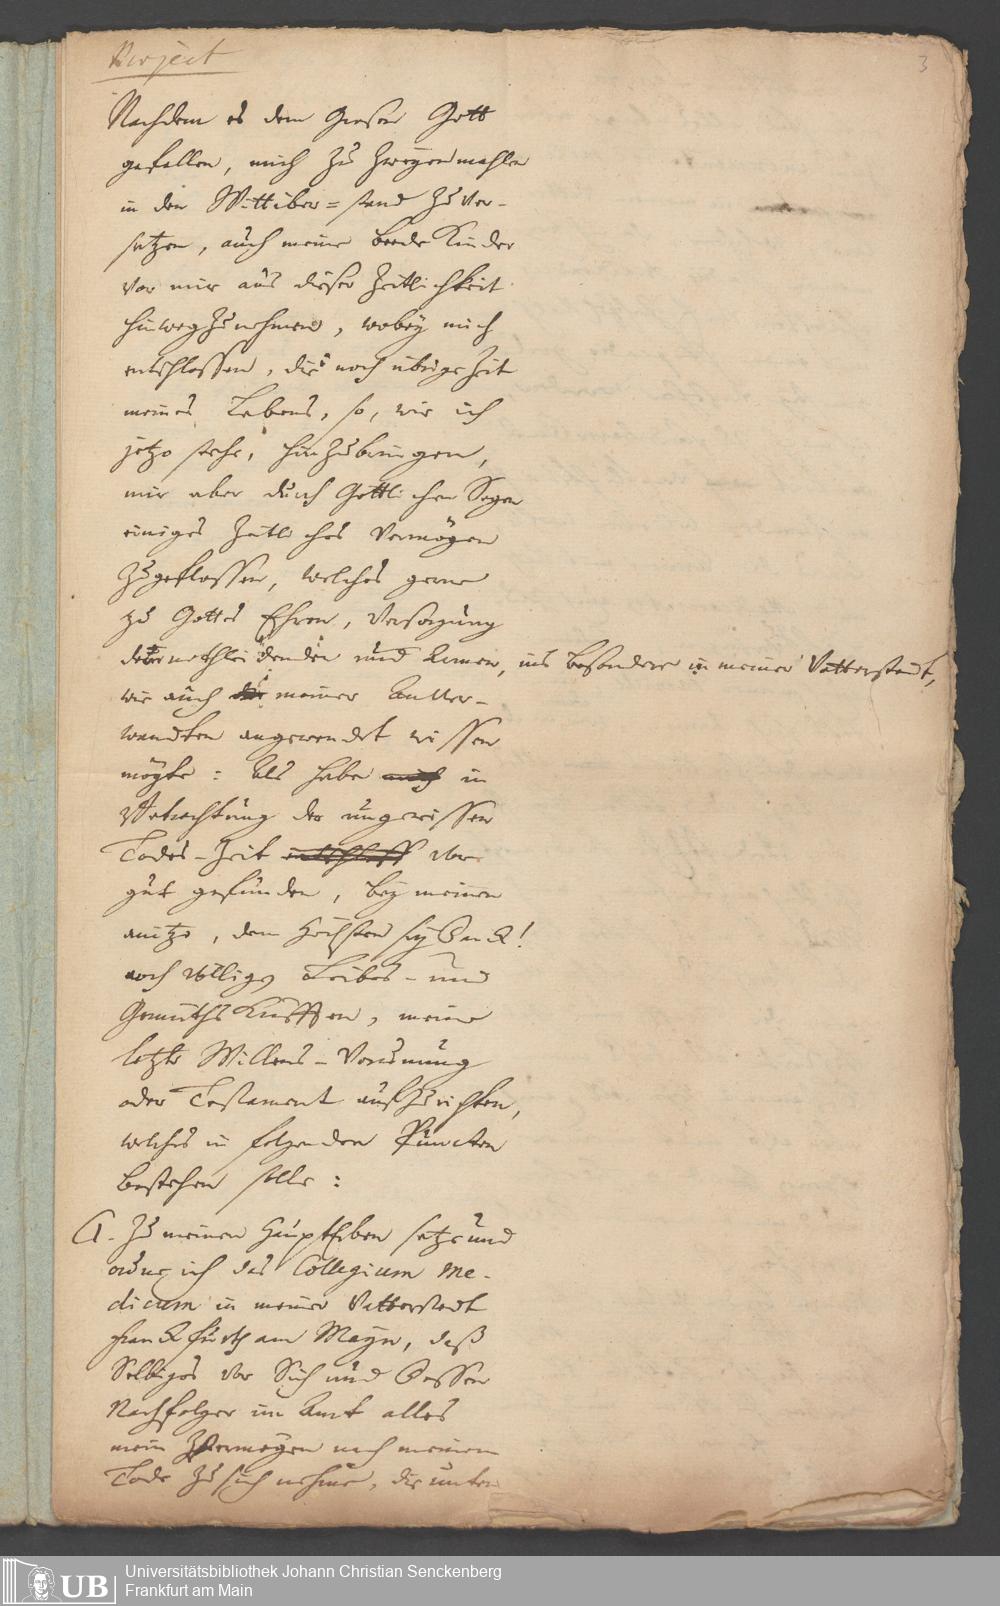 Project
3
Nachdem es dem Grosen Gott
gefallen, mich zu Zweyenmahlen
in den Wittiber=stand zu ver-
setzen, auch meine beede Kinder
vor mir aus dieser Zeitlichkeit
hinwegzunehmen, wobey mich
entschlossen, die noch übrige Zeit
meines Lebens, so, wie ich
jetzo stehe, hinzubringen,
mir aber durch Göttlichen Segen
einiges Zeitliches Vermögen
zugeflossen, welches gerne
zu Gottes Ehren, Versorgung
der nothleidenden und Armen, ins besondere in meiner Vatterstadt,
wie auch meiner Anver-
wandten angewendet wissen
mögte: Als habe in
Betrachtung der ungewissen
Todes-Zeit vor
gut gefunden, bey meinen
anitzo, dem Höchsten sey Danck!
noch völligen Leibes- und
Gemüths Kräfften, meine
letzte Willens-Verordnung
oder Testament aufzurichten,
welches in folgenden Puncten
bestehen solle:
1. Zu meinen HauptErben setze und
ordne ich das Collegium Me-
dicum in meiner Vatterstadt
Franckfurth am Mayn, daß
Selbiges vor Sich und Dessen
Nachfolger im Amt alles
mein Vermögen nach meinem
Tode zu sich nehme, die unten
UB
Universitätsbibliothek Johann Christian Senckenberg
Frankfurt am Main